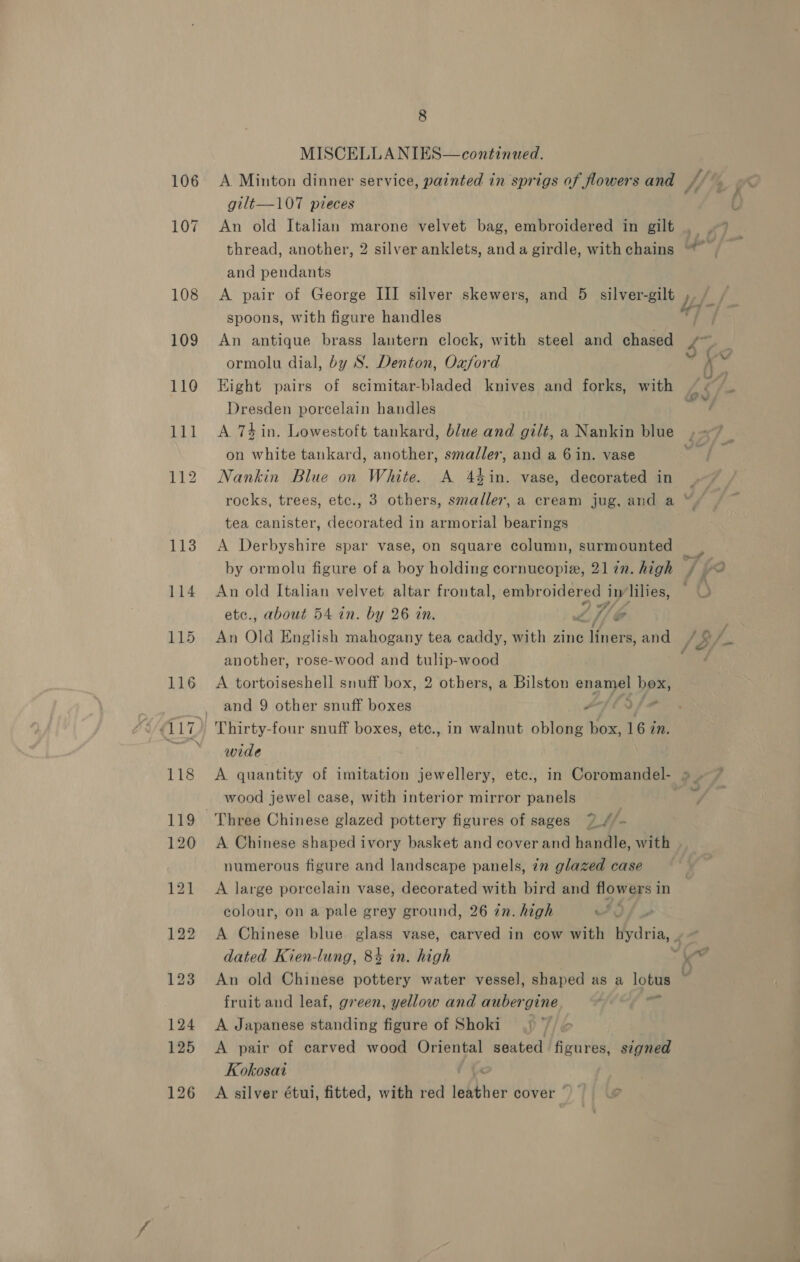 8
MISCELLANIES—continued.
106 A Minton dinner service, painted in sprigs of flowers and
gilt—107 pieces
107 An old Italian marone velvet bag, embroidered in gilt
thread, another, 2 silver anklets, and a girdle, with chains
and pendants
108 A pair of George III silver skewers, and 5 silver-gilt
spoons, with figure handles
109 An antique brass lantern clock, with steel and chased
ormolu dial, by S. Denton, Oxford
110 Eight pairs of scimitar-bladed knives and forks, with
Dresden porcelain handles
111 A 7½in. Lowestoft tankard, blue and gilt, a Nankin blue
on white tankard, another, smaller, and a 6 in. vase
112 Nankin Blue on White. A 4½in. vase, decorated in
rocks, trees, etc., 3 others, smaller, a cream jug, and a
tea canister, decorated in armorial bearings
113 A Derbyshire spar vase, on square column, surmounted
by ormolu figure of a boy holding cornucopiæ, 21 in. high
114 An old Italian velvet altar frontal, embroidered in lilies,
etc., about 54 in. by 26 in.
115 An Old English mahogany tea caddy, with zinc liners, and
another, rose-wood and tulip-wood
116 A tortoiseshell snuff box, 2 others, a Bilston enamel box,
and 9 other snuff boxes
117 Thirty-four snuff boxes, etc., in walnut oblong box, 16 in.
wide
118 A quantity of imitation jewellery, etc., in Coromandel-
wood jewel case, with interior mirror panels
119 Three Chinese glazed pottery figures of sages
120 A Chinese shaped ivory basket and cover and handle, with
numerous figure and landscape panels, in glazed case
121 A large porcelain vase, decorated with bird and flowers in
colour, on a pale grey ground, 26 in. high
122 A Chinese blue glass vase, carved in cow with hydria,
dated Kien-lung, 8½ in. high
123 An old Chinese pottery water vessel, shaped as a lotus
fruit and leaf, green, yellow and aubergine
124 A Japanese standing figure of Shoki
125 A pair of carved wood Oriental seated figures, signed
Kokosai
126 A silver étui, fitted, with red leather cover